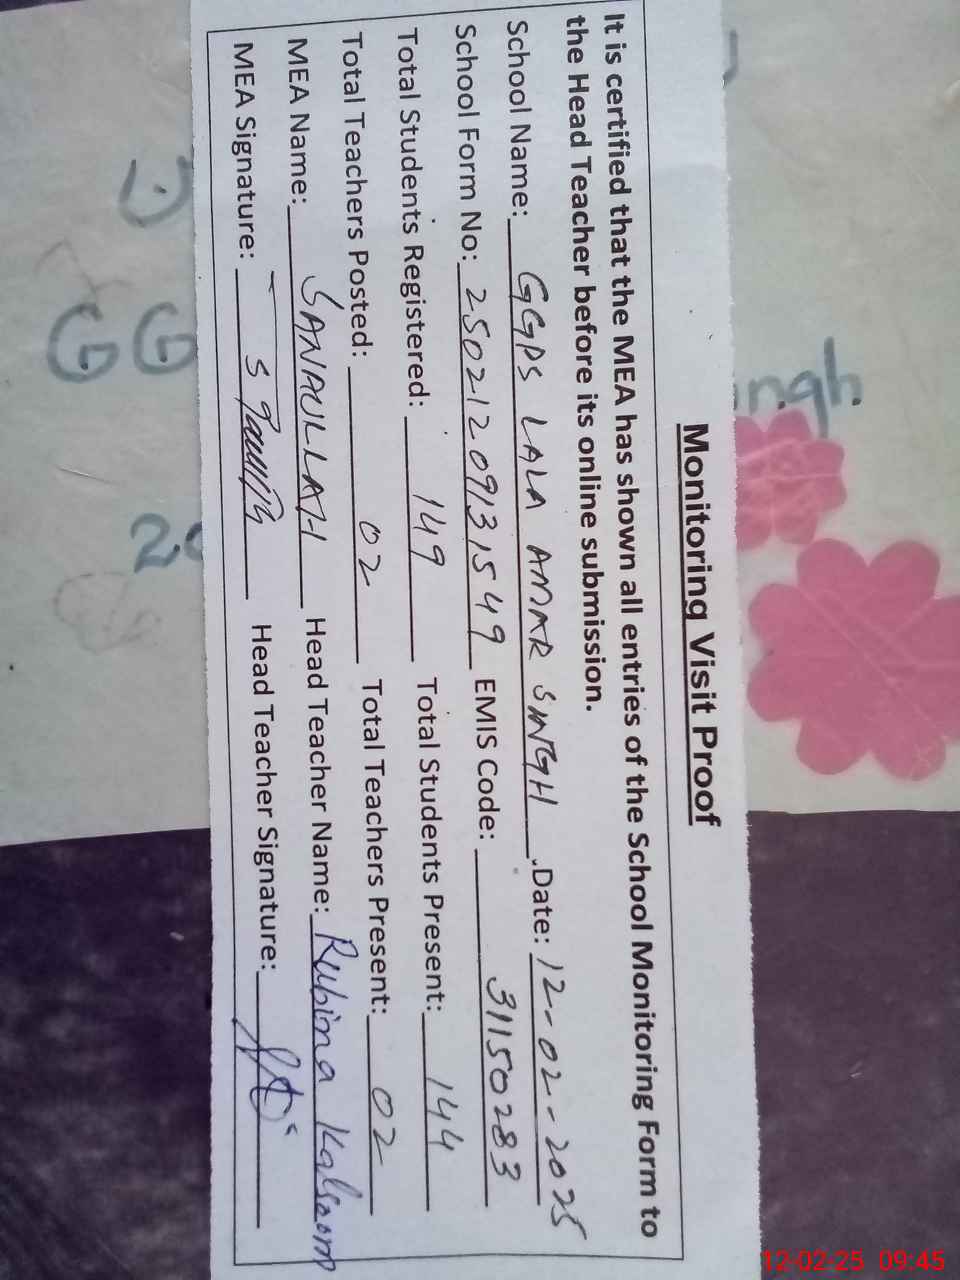 Monitoring Visit Proof
It is certified that the MEA has shown all entries of the School Monitoring Form to
the Head Teacher before its online submission.
School Name: GGPS LALA AMAR SINGH Date: 12-02-2025
School Form No: 2502120913 1549 EMIS Code: 31150283
Total Students Registered: 149 Total Students Present: 144
Total Teachers Posted: 02 Total Teachers Present: 02
MEA Name: SANAULLAH Head Teacher Name: Rubina Kalsoom
MEA Signature: Head Teacher Signature:
ngh
GG
12-02-25 09:45